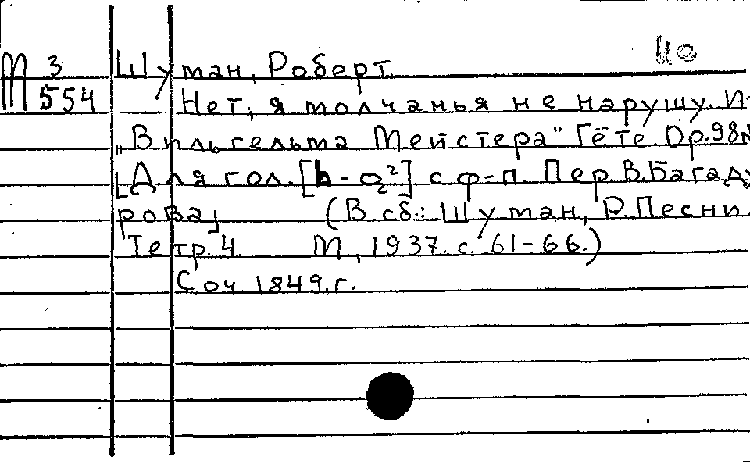 М 3 Шуман, Роберт. но
554 Нет, я молчанья не нарушу. И
„Вильгельма Мейстера" Гёте. Ор.98
[Для гол. [h-a²] с ф-п. Пер. В. Багаду
рова] (В сб.: Шуман, Р. Песни.
Тетр. 4 М., 1937. с. 61-66.)
Соч 1849 г.